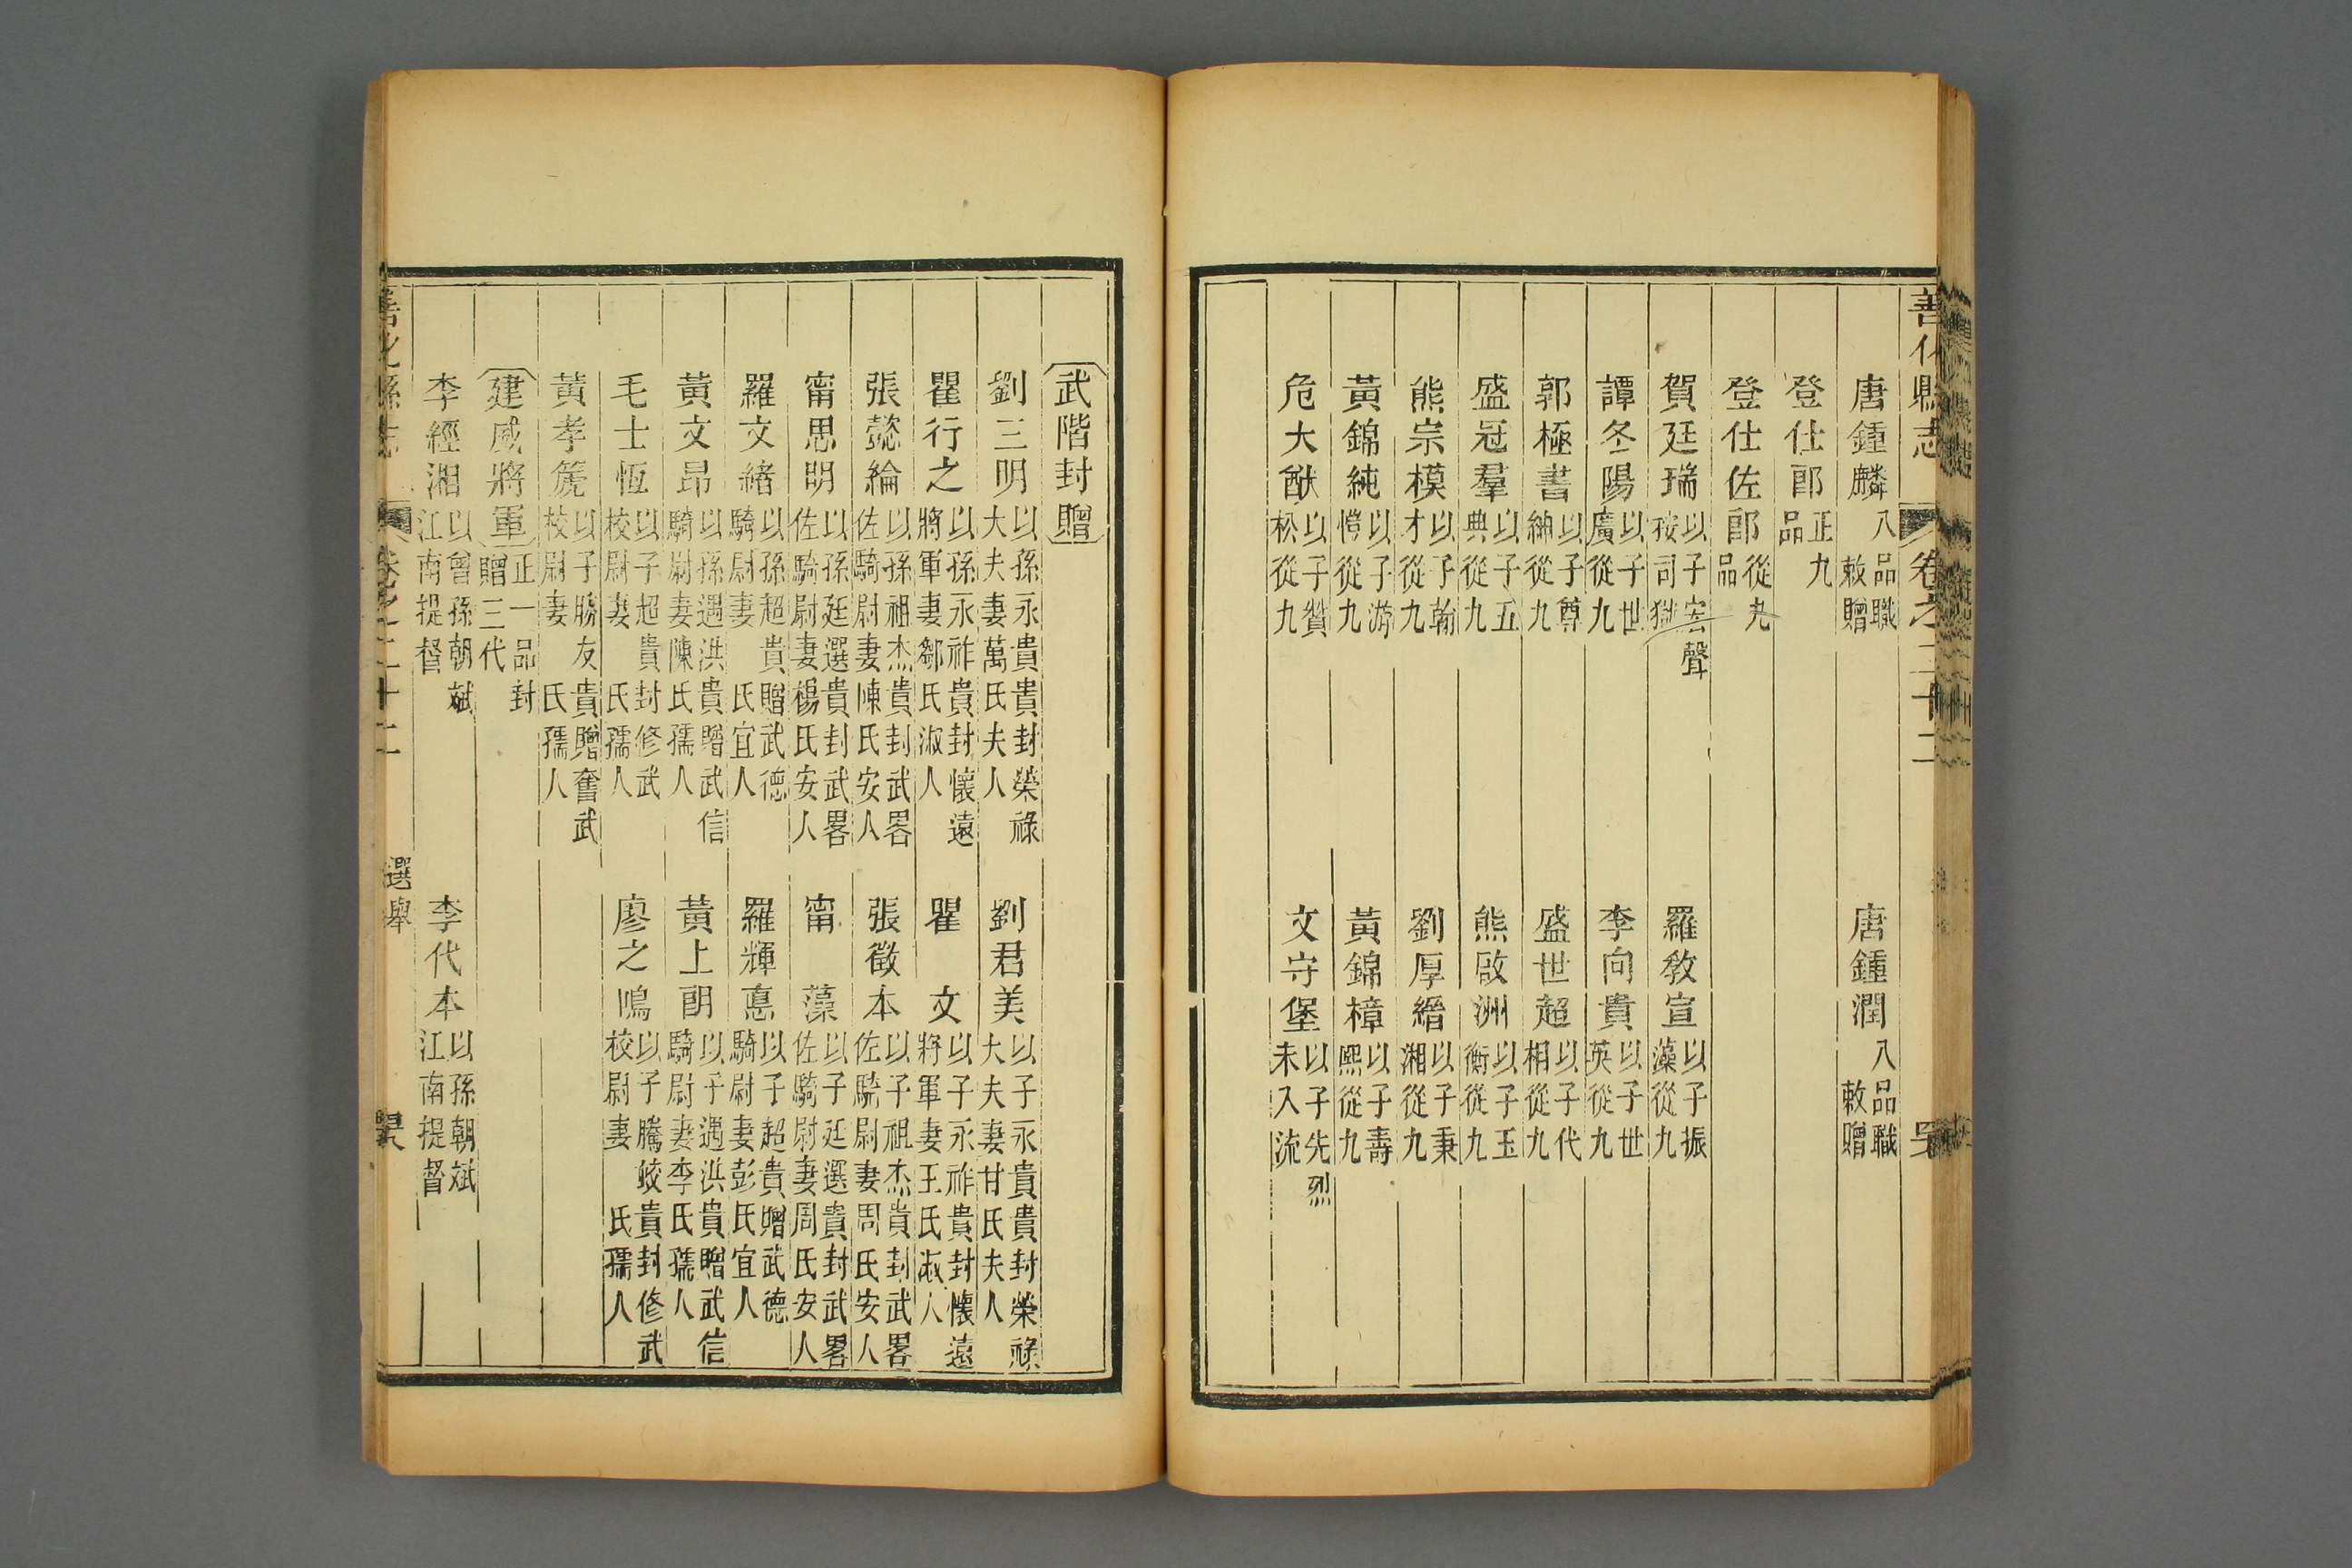 善化縣志 卷之二十二
唐鍾麟八品職敕贈 唐鍾潤八品職敕贈
登仕郎正九品
登仕佐郎從九品
賀廷瑞以子宏聲按司獄 羅教宣以子振藻從九
譚冬陽以子世廣從九 李向貴以子世英從九
郭極書以子尊納從九 盛世超以子代相從九
盛冠羣以子五典從九 熊啟洲以子玉衡從九
熊宗模以子翰才從九 劉厚緡以子秉湘從九
黃錦純以子游愷從九 黃錦樟以子壽熙從九
危大猷以子贊松從九 文守堡以子先烈未入流
武階封贈
劉三明以孫永貴貴封榮祿大夫妻萬氏夫人 劉君美以子永貴貴封榮祿大夫妻甘氏夫人
瞿行之以孫永祚貴封懷遠將軍妻鄒氏淑人 瞿文以子永祚貴封懷遠將軍妻王氏淑人
張懿綸以孫祖杰貴封武畧佐騎尉妻陳氏安人 張徵本以子祖杰貴封武畧佐騎尉妻周氏安人
甯思明以孫廷選貴封武畧佐騎尉妻楊氏安人 甯藻以子廷選貴封武畧佐騎尉妻周氏安人
羅文緒以孫超貴贈武德騎尉妻 氏宜人 羅輝悳以子超貴贈武德騎尉妻彭氏宜人
黃文昂以孫遇洪貴贈武信騎尉妻陳氏孺人 黃上朗以子遇洪貴贈武信騎尉妻李氏孺人
毛士恆以子超貴封修武校尉妻 氏孺人 廖之鳴以子騰蛟貴封修武校尉妻 氏孺人
黃孝篪以子勝友貴贈奮武校尉妻 氏孺人
建威將軍正一品封贈三代
李經湘以曾孫朝斌江南提督 李代本以孫朝斌江南提督
善化縣志 卷之二十二 選舉